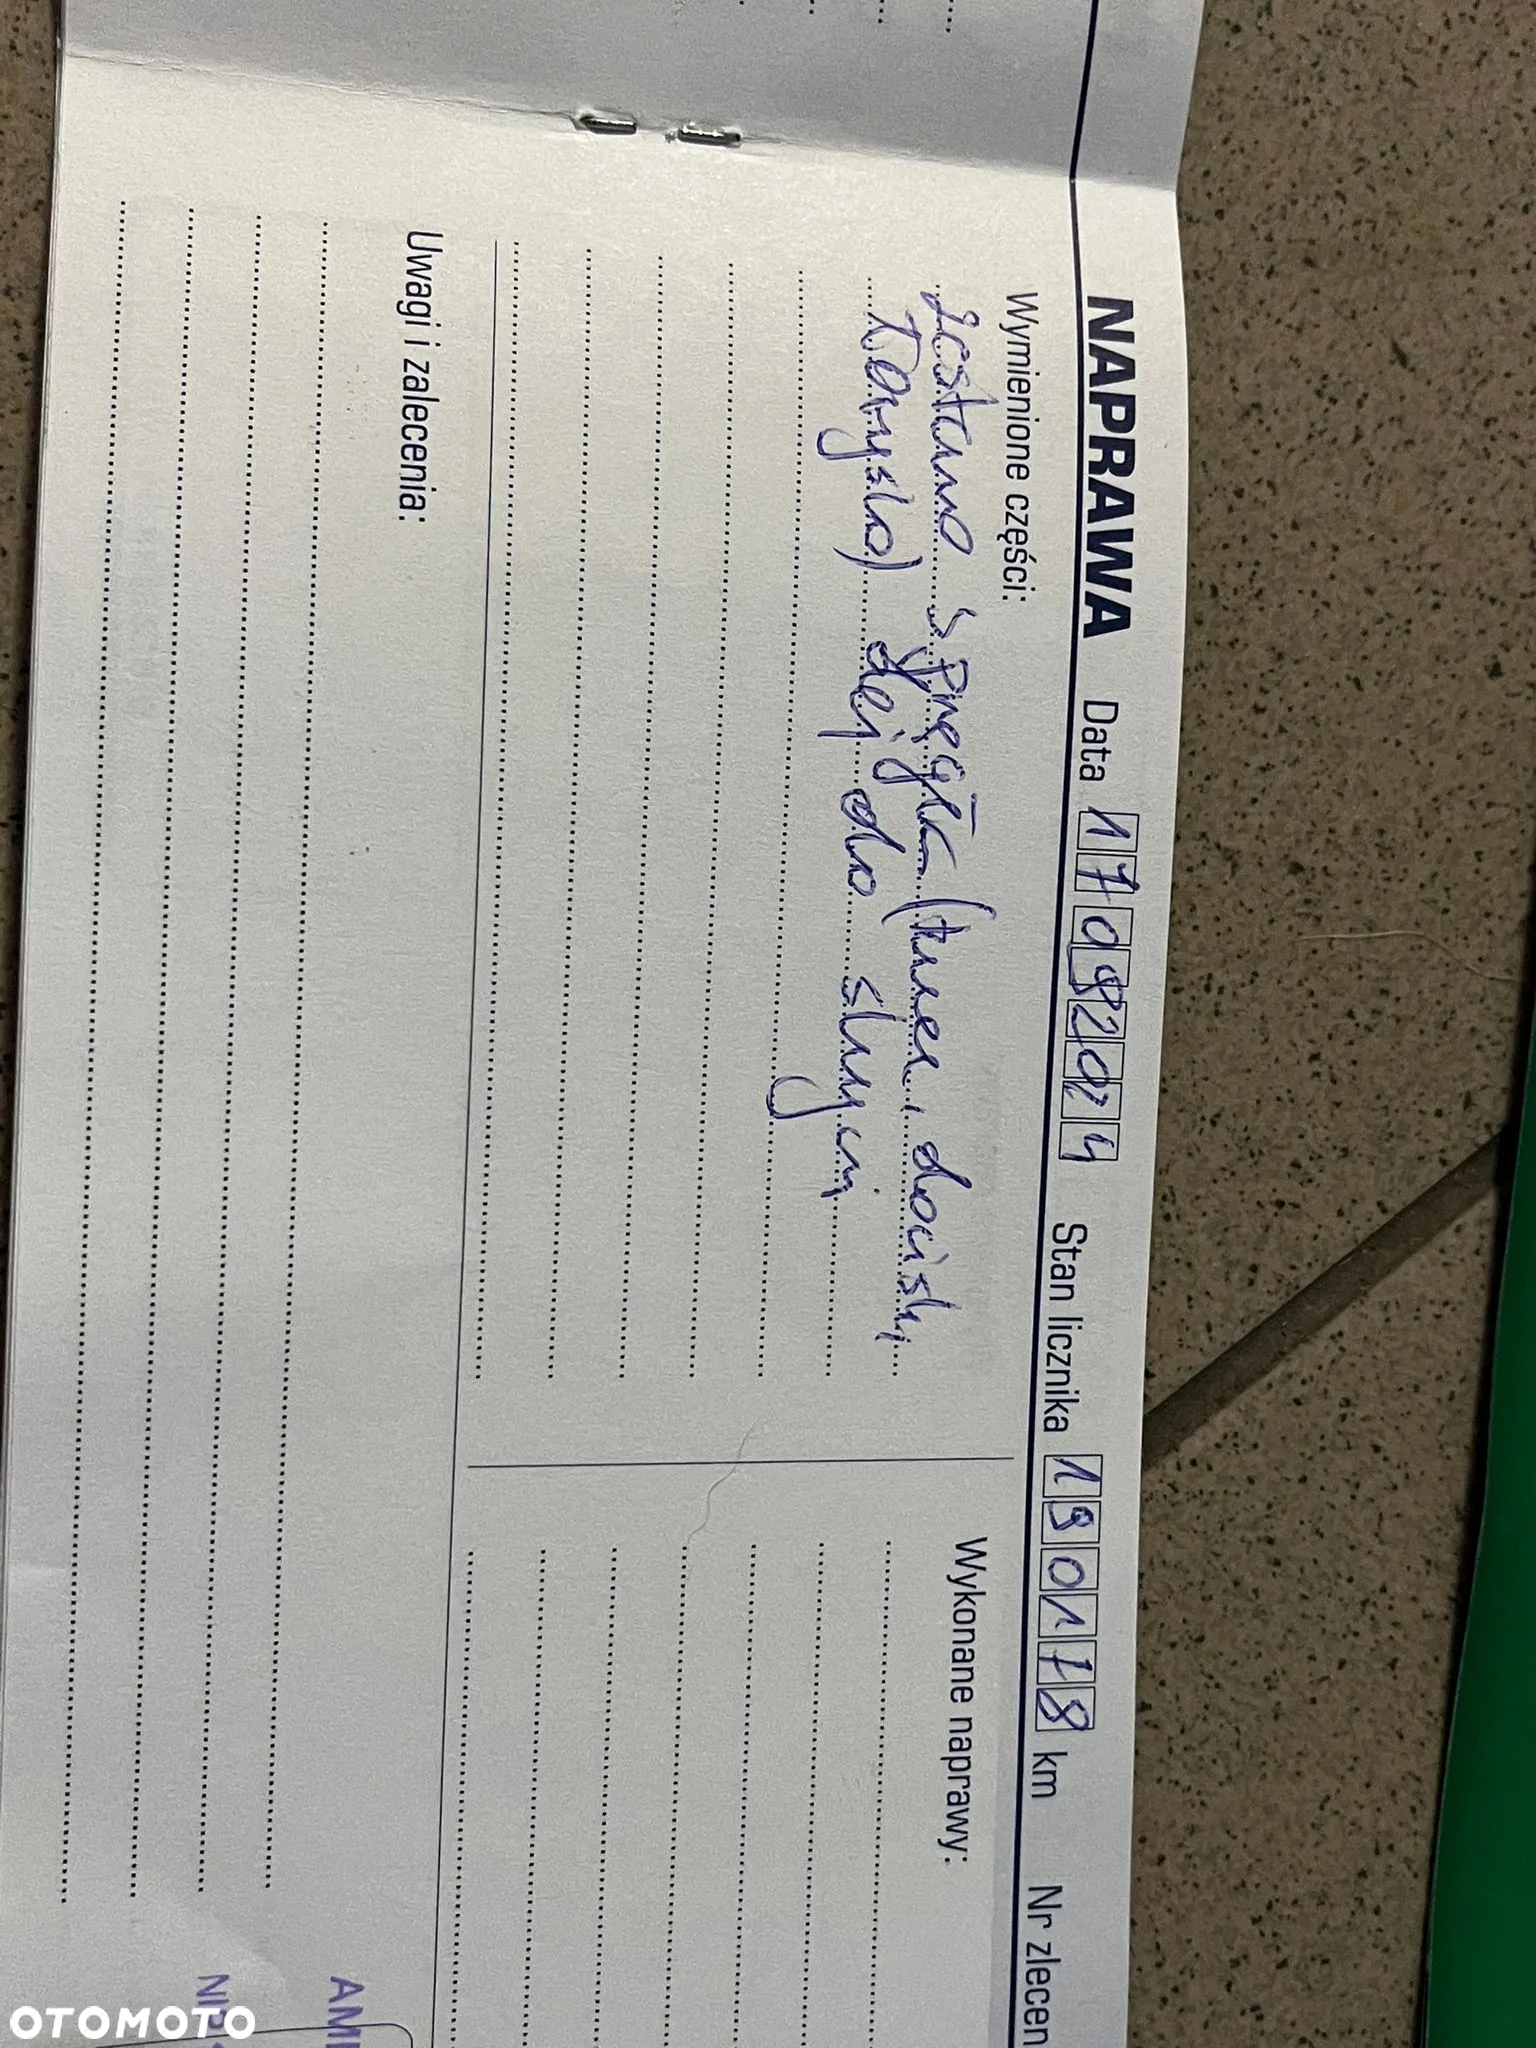 NAPRAWA Data 17092024 Stan licznika 190178 km Nr zlecen
Wymienione części:
Zestaw sprzęgła (tarcza, docisk,
łożysko) olej do skrzyni
Wykonane naprawy:
Uwagi i zalecenia:
AM
NIP
OTOMOTO